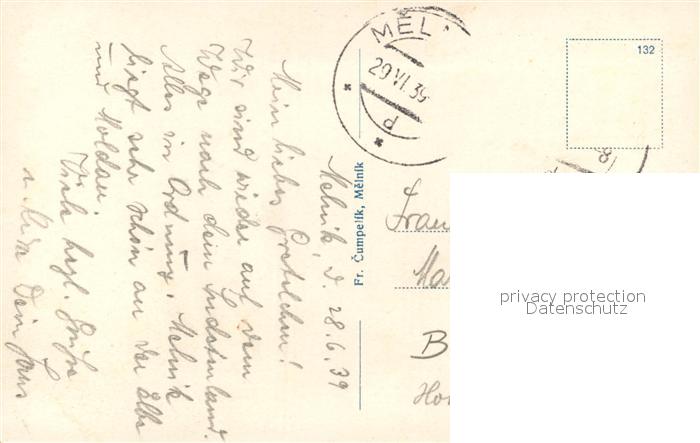 Melnik, d. 28.6.39
Mein liebes Gretelchen!
Wir sind wieder auf dem
Wege nach dem Sudetenland.
Alles in Ordnung. Melnik
liegt sehr schön an der Elbe
und Moldau.
Viele herzl. Grüße
u. Küsse Dein Hans
Fr. Čumpelík, Mělník
MĚL
29 VI 39
p
132
Frau
Ma
B
privacy protection
Datenschutz